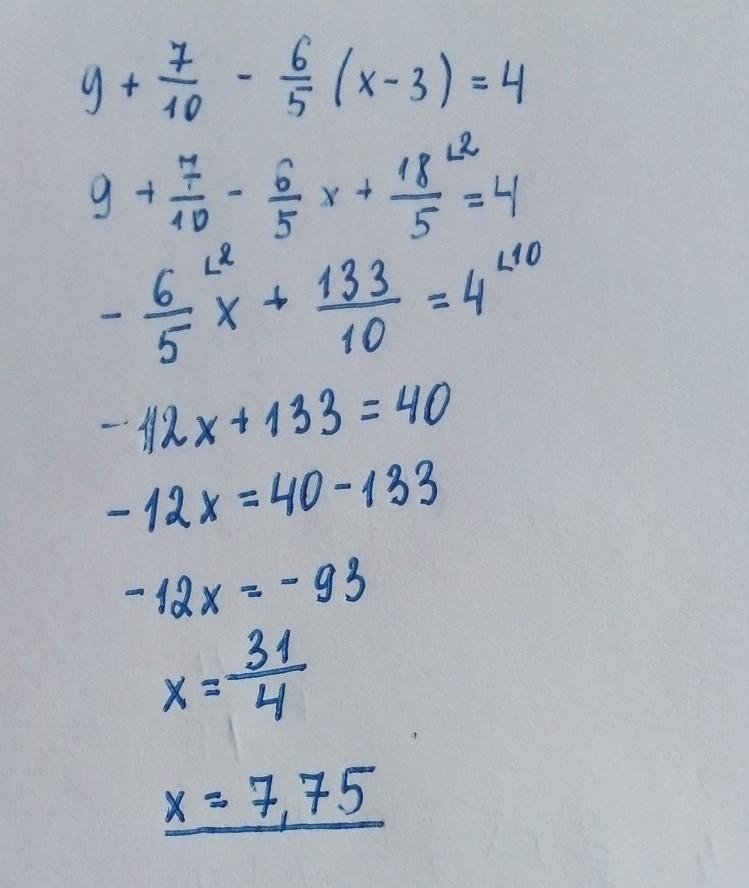 9 + 7/10 - 6/5 (x - 3) = 4
9 + 7/10 - 6/5 x + 18/5 ⌊2 = 4
- 6/5 ⌊2 x + 133/10 = 4 ⌊10
-12x + 133 = 40
-12x = 40 - 133
-12x = -93
x = 31/4
x = 7,75